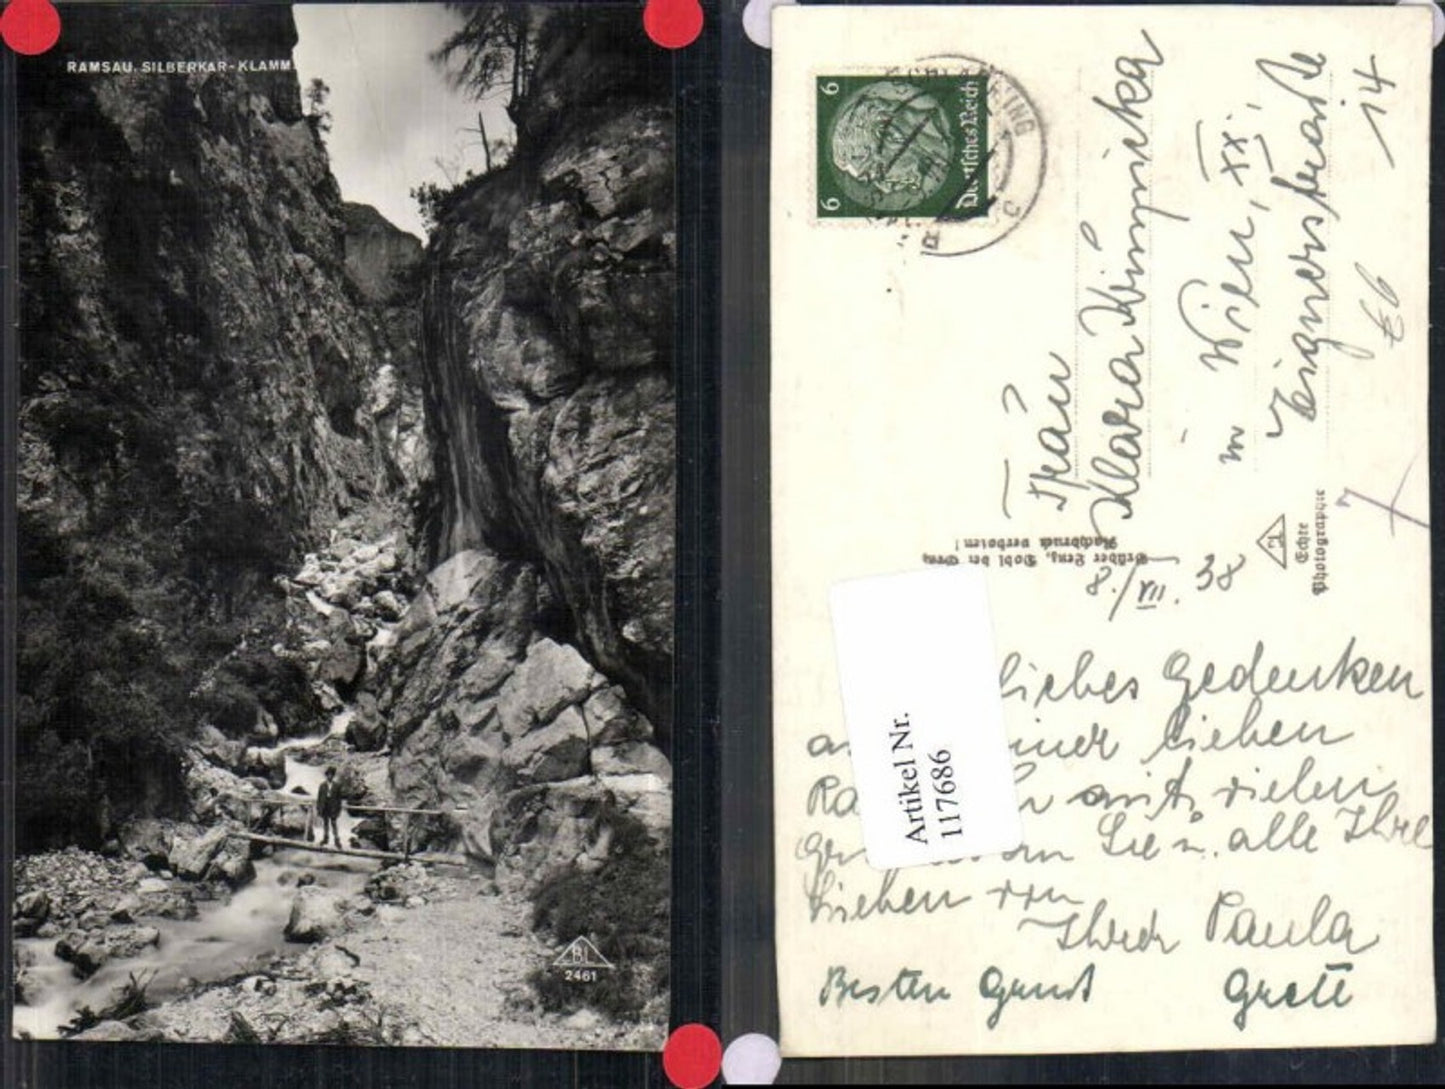 RAMSAU. SILBERKAR-KLAMM
BL
2461
6
6
Deutsches Reich
Frau
Klara
in Wien, XX.,
14
Brüder Lenz, Dobl bei Graz
Nachdruck verboten!
Echte
Photographie
8./VII. 38
liebes Gedenken
lieben
mit vielen
Sie u. alle Ihre
Lieben von
Ihrer Paula
Besten Gruß Grete
Artikel Nr.
117686